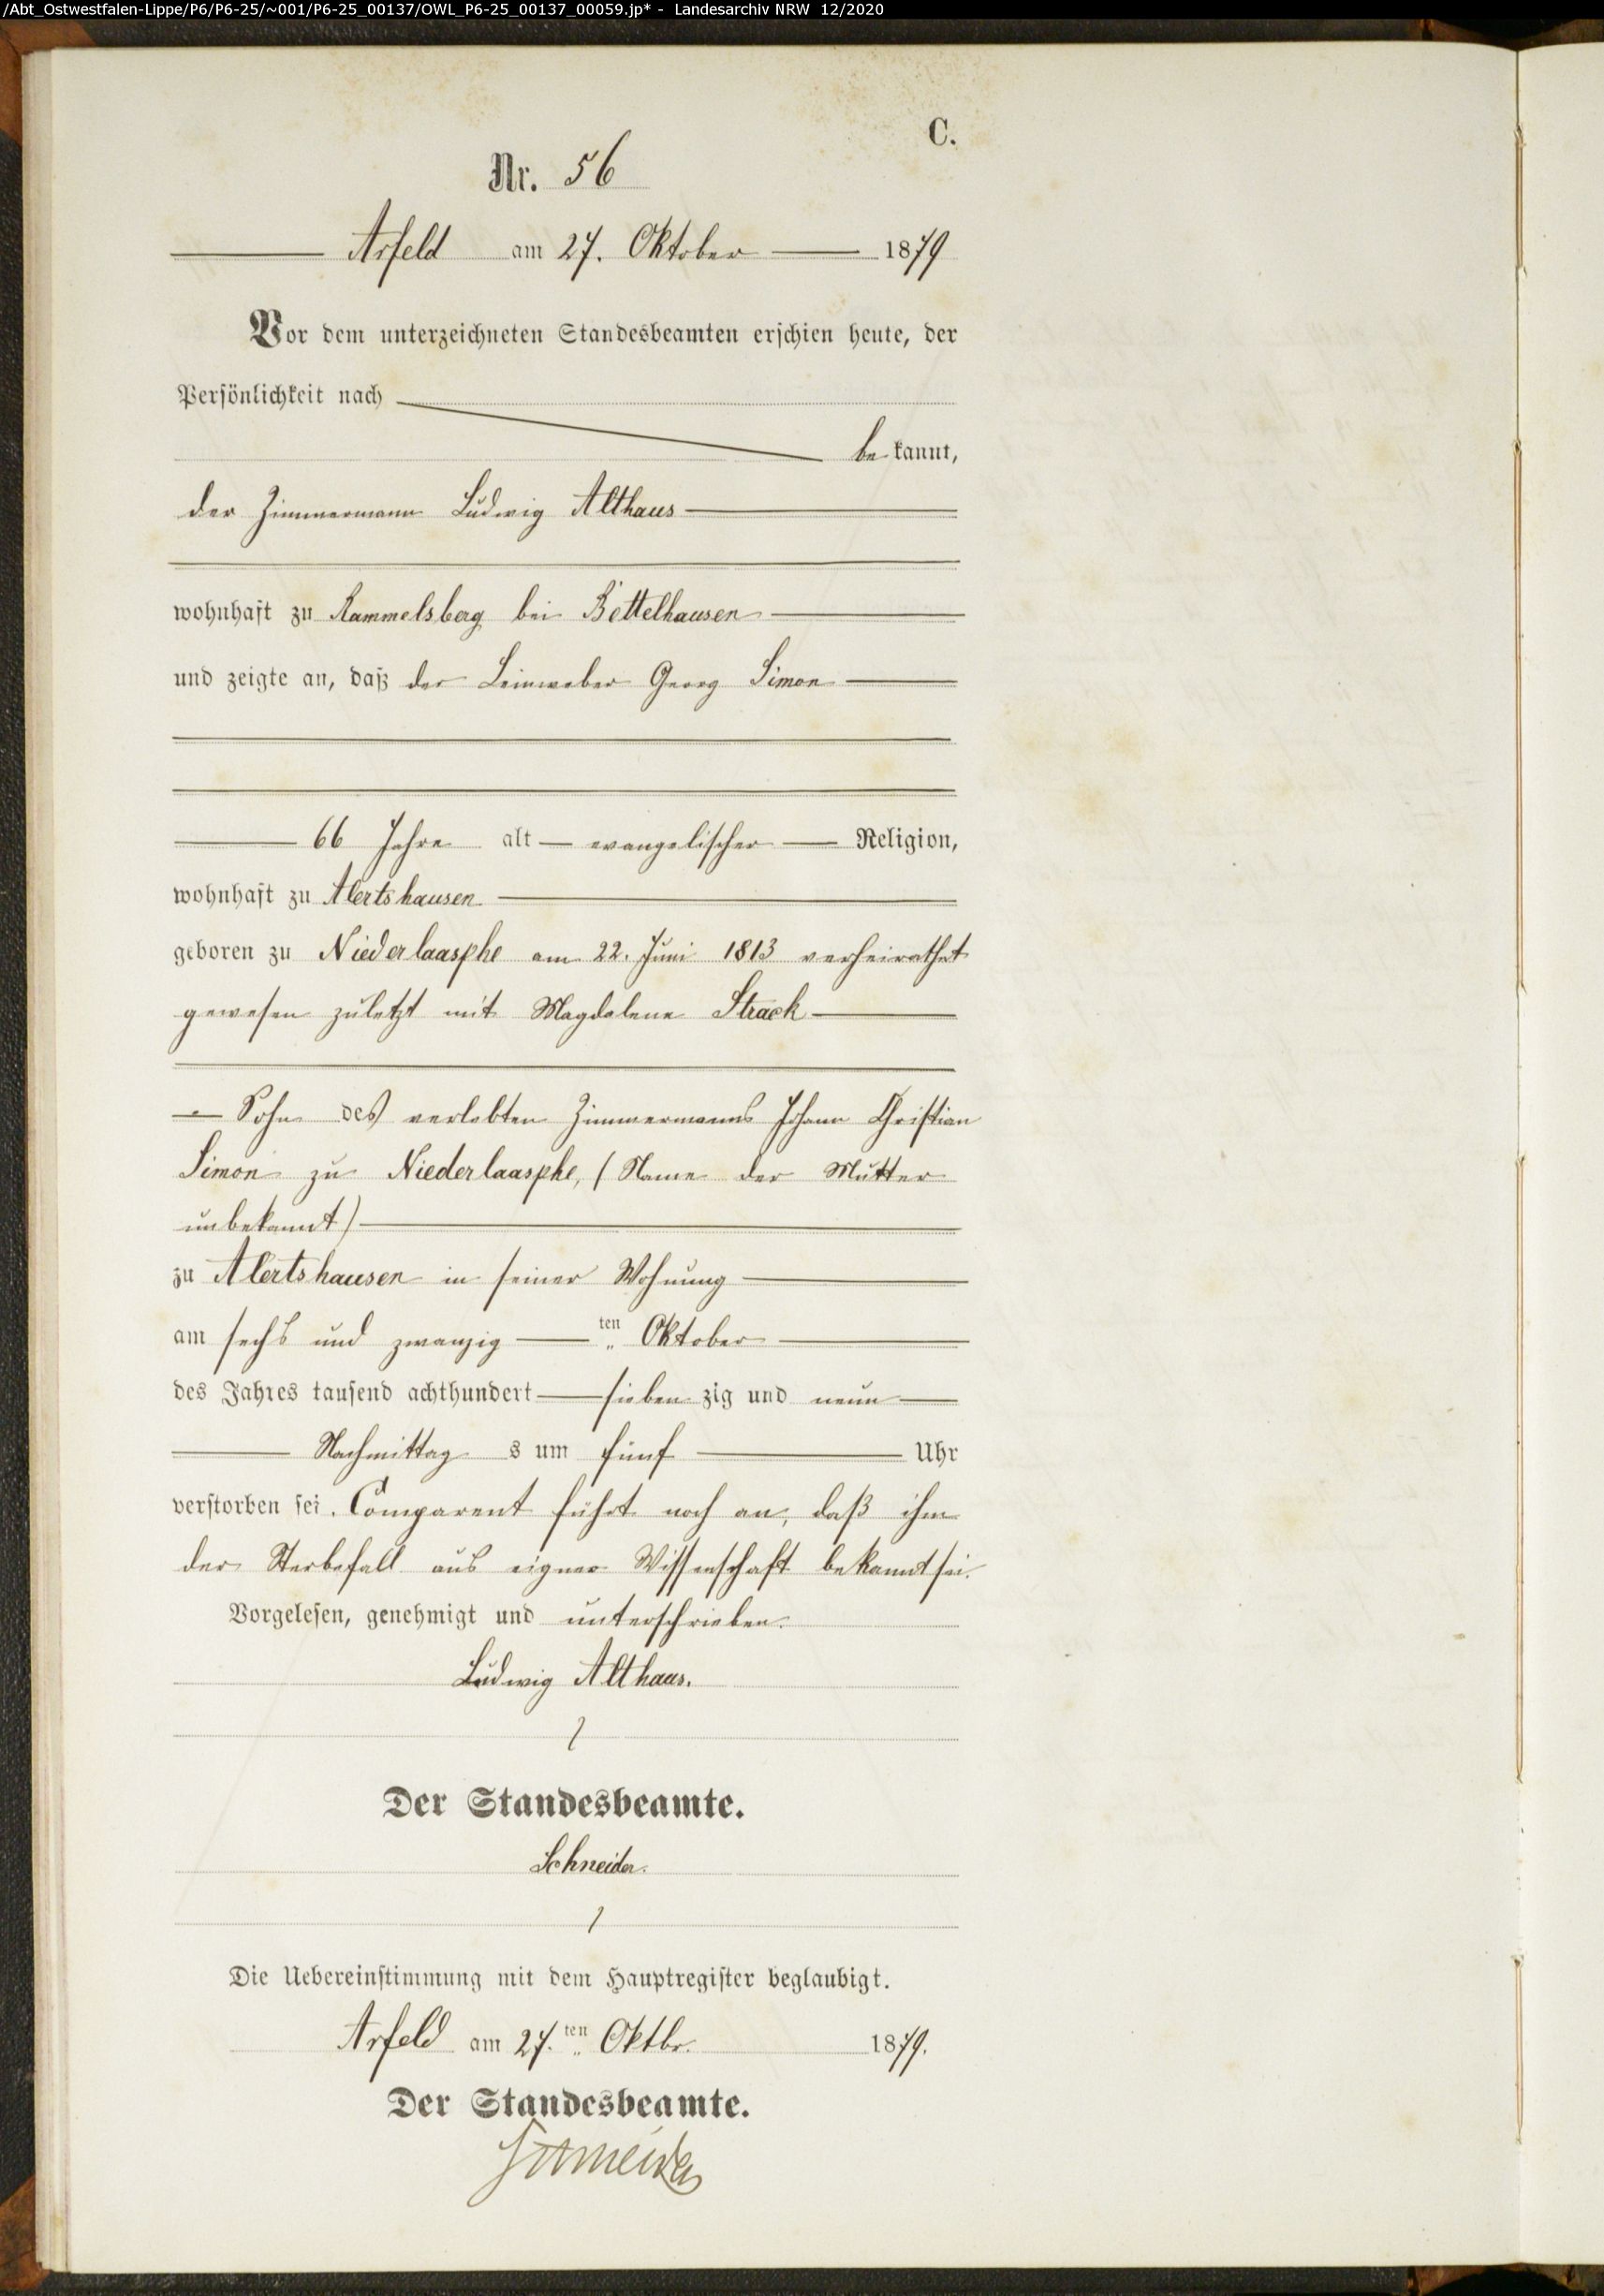 /Abt_Ostwestfalen-Lippe/P6/P6-25/~001/P6-25_00137/OWL_P6-25_00137_00059.jp* - Landesarchiv NRW 12/2020
C.
Nr. 56
Arfeld am 27. Oktober 1879
Vor dem unterzeichneten Standesbeamten erschien heute, der
Persönlichkeit nach
bekannt,
der Zimmermann Ludwig Althaus
wohnhaft zu Rammelsberg bei Bettelhausen
und zeigte an, daß der Leinweber Georg Simon
66 Jahre alt evangelischer Religion,
wohnhaft zu Alertshausen
geboren zu Niederlaasphe am 22. Juni 1813 verheirathet
gewesen zuletzt mit Magdalene Strack
Sohn des verlebten Zimmermanns Johann Christian
Simon zu Niederlaasphe, (Name der Mutter
unbekannt)
zu Alertshausen in seiner Wohnung
am sechs und zwanzig ten Oktober
des Jahres tausend achthundert sieben zig und neun
Nachmittag s um fünf Uhr
verstorben sei. Comparent führt noch an, daß ihm
der Sterbefall aus eigner Wissenschaft bekannt sei.
Vorgelesen, genehmigt und unterschrieben.
Ludwig Althaus.
Der Standesbeamte.
Schneider.
Die Uebereinstimmung mit dem Hauptregister beglaubigt.
Arfeld am 27. ten Oktbr. 1879.
Der Standesbeamte.
Schneider